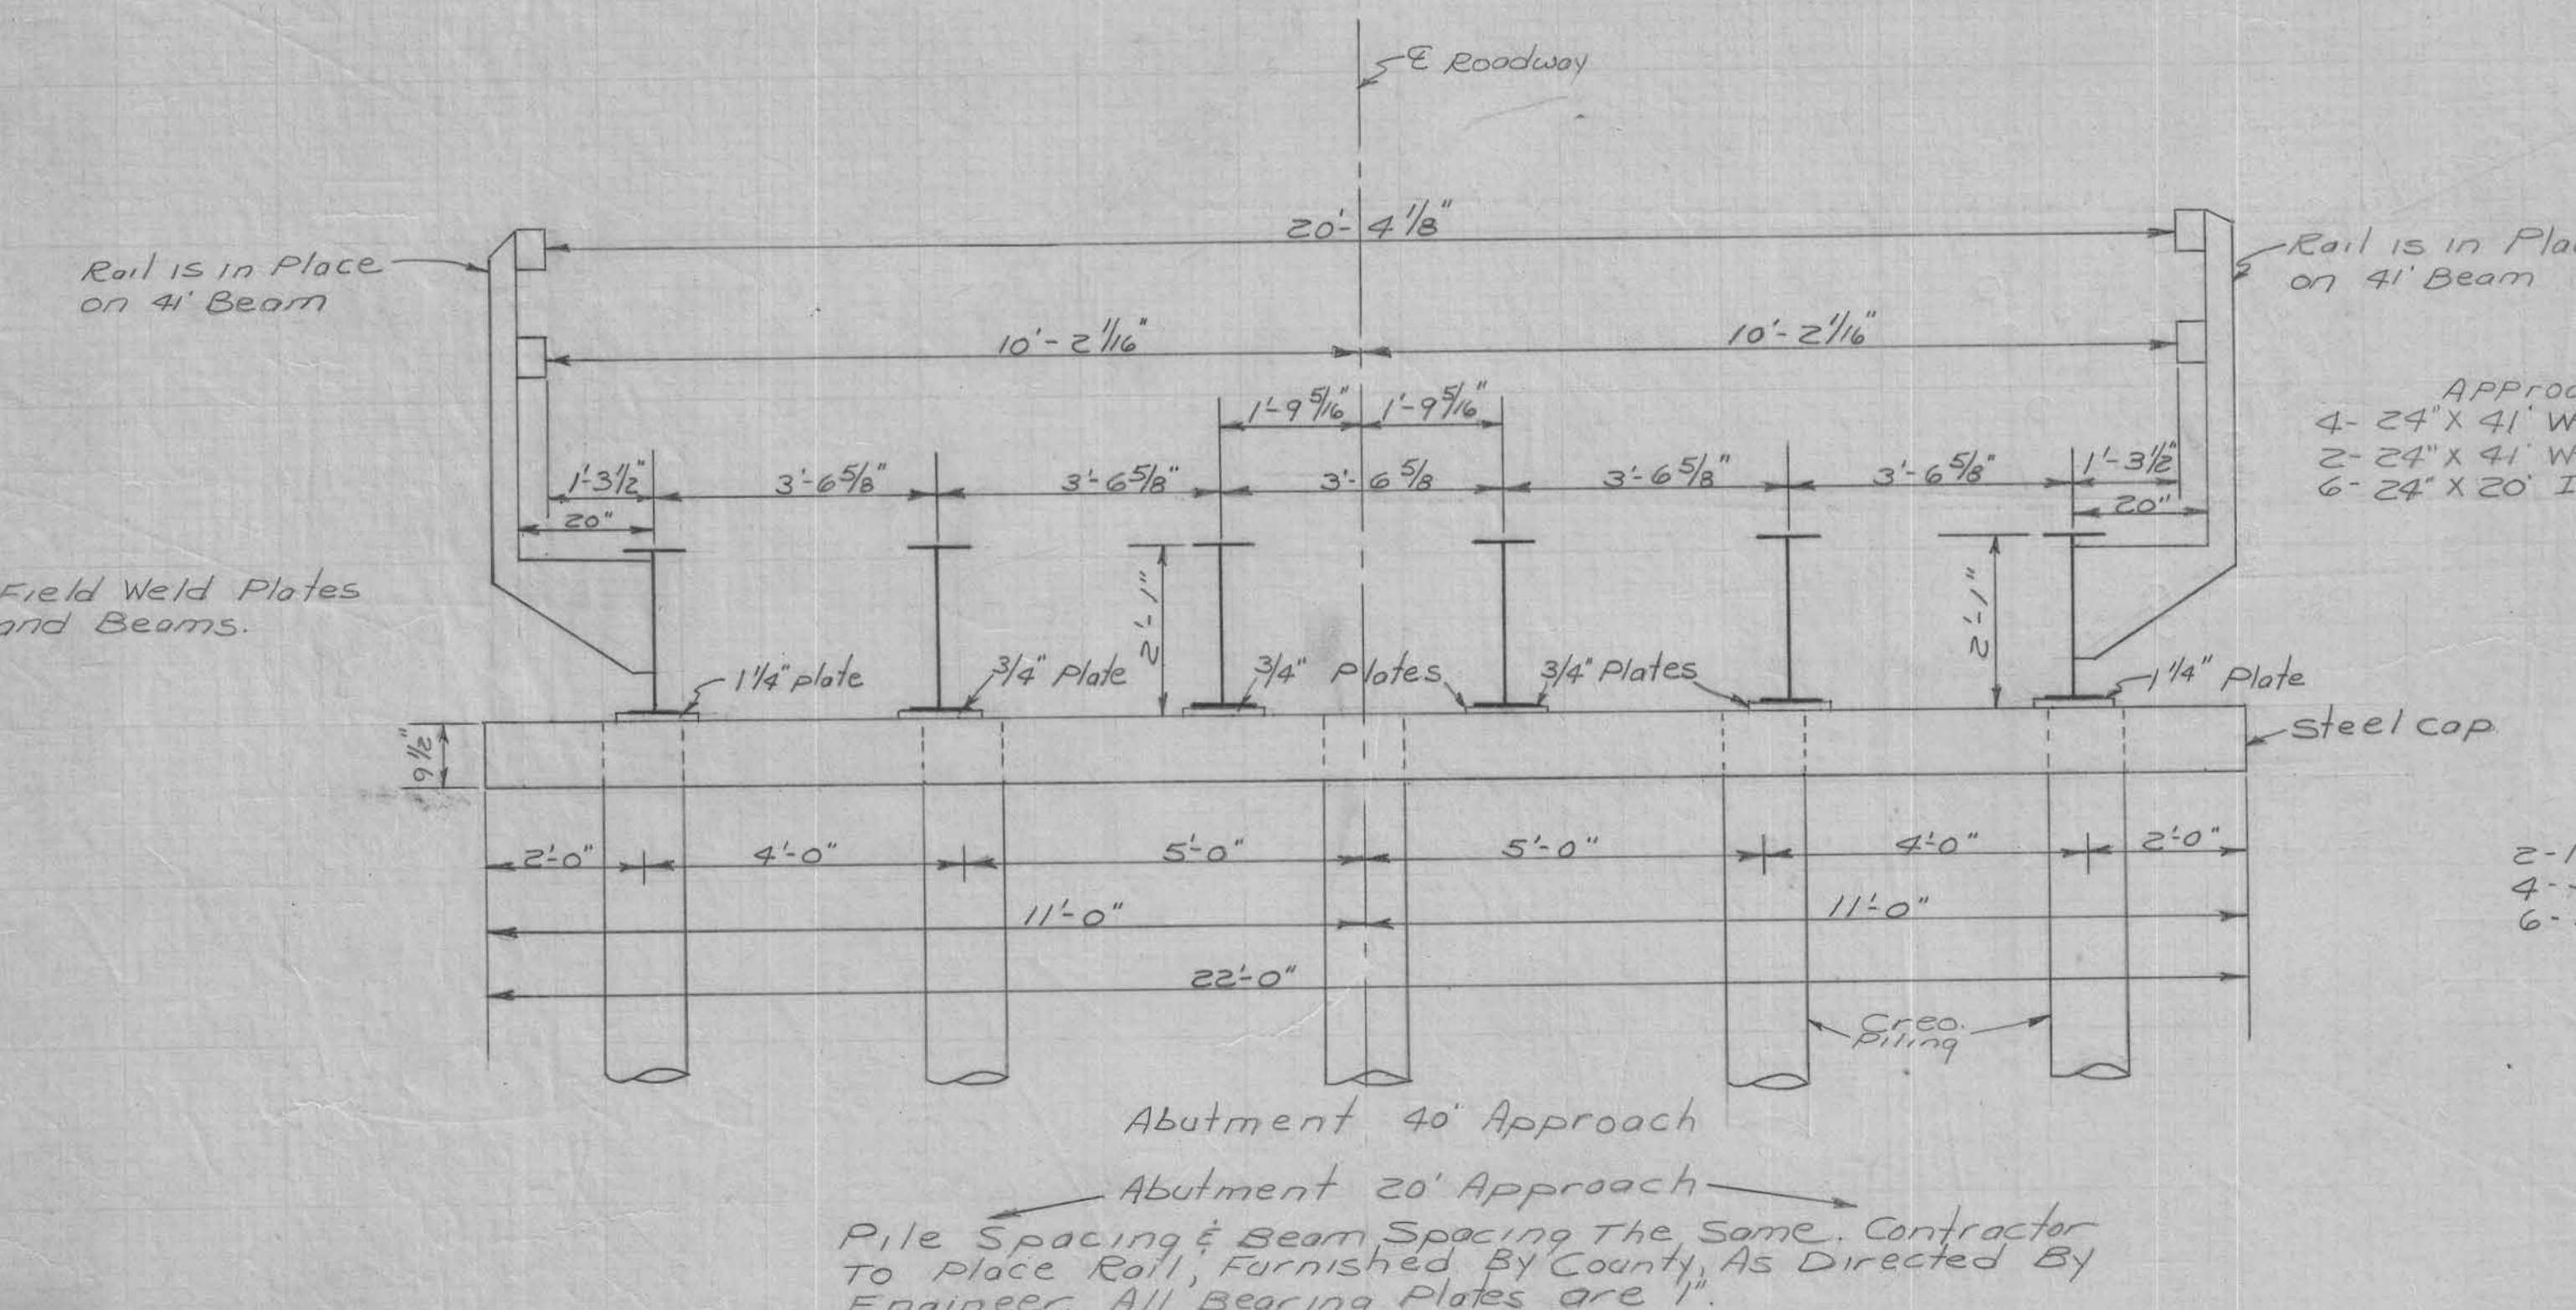 ℄ Roadway
20'-4 1/8"
Rail is in Place
on 41' Beam
Rail is in Pla
on 41' Beam
10'-2 1/16"
10'-2 1/16"
1'-9 5/16"
1'-9 5/16"
Approa
4- 24" X 41' W
2- 24" X 41' W
6- 24" X 20' I
1'-3 1/2"
3'-6 5/8"
3'-6 5/8"
3'-6 5/8
3'-6 5/8"
3'-6 5/8"
1'-3 1/2"
20"
20"
Field Weld Plates
and Beams.
2'-1"
2'-1"
1 1/4" plate
3/4" Plate
3/4" Plates
3/4" Plates
1 1/4" Plate
Steel Cap
9 1/2"
2'-0"
4'-0"
5'-0"
5'-0"
4'-0"
2'-0"
2-1
4-
6-
11'-0"
11'-0"
22'-0"
Creo.
Piling
Abutment 40' Approach
Abutment 20' Approach
Pile Spacing & Beam Spacing The Same. Contractor
To Place Rail, Furnished By County, As Directed By
Engineer. All Bearing Plates are 1".